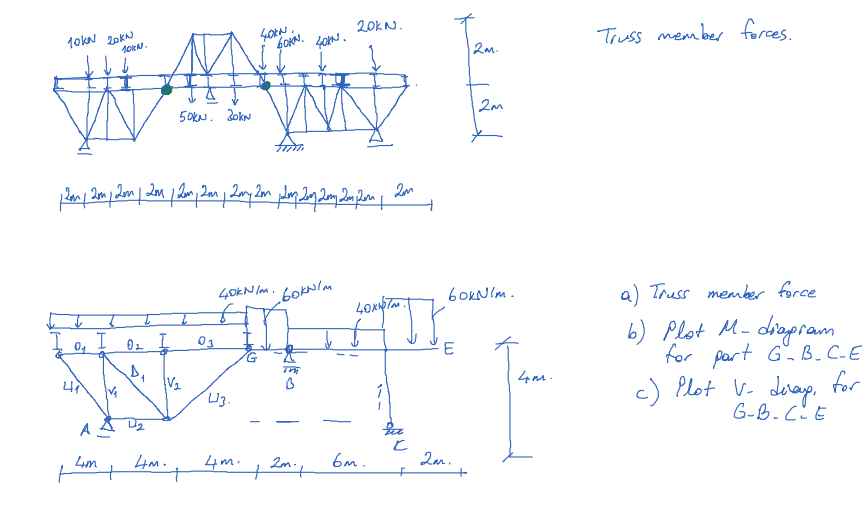 Truss member forces.
10KN 20KN 10KN. 40KN. 60KN. 40KN. 20KN.
50KN. 30KN.
2m.
2m
2m 2m 2m 2m 2m 2m 2m 2m 2m 2m 2m 2m 2m 2m
40KN/m. 60KN/m 40KN/m. 60KN/m.
O1 O2 O3 G B E
U1 V1 D1 V2 U3.
A U2 C
4m.
4m 4m. 4m. 2m. 6m. 2m.
a) Truss member force
b) Plot M-diagram
for part G-B-C-E
c) Plot V- diag. for
G-B-C-E